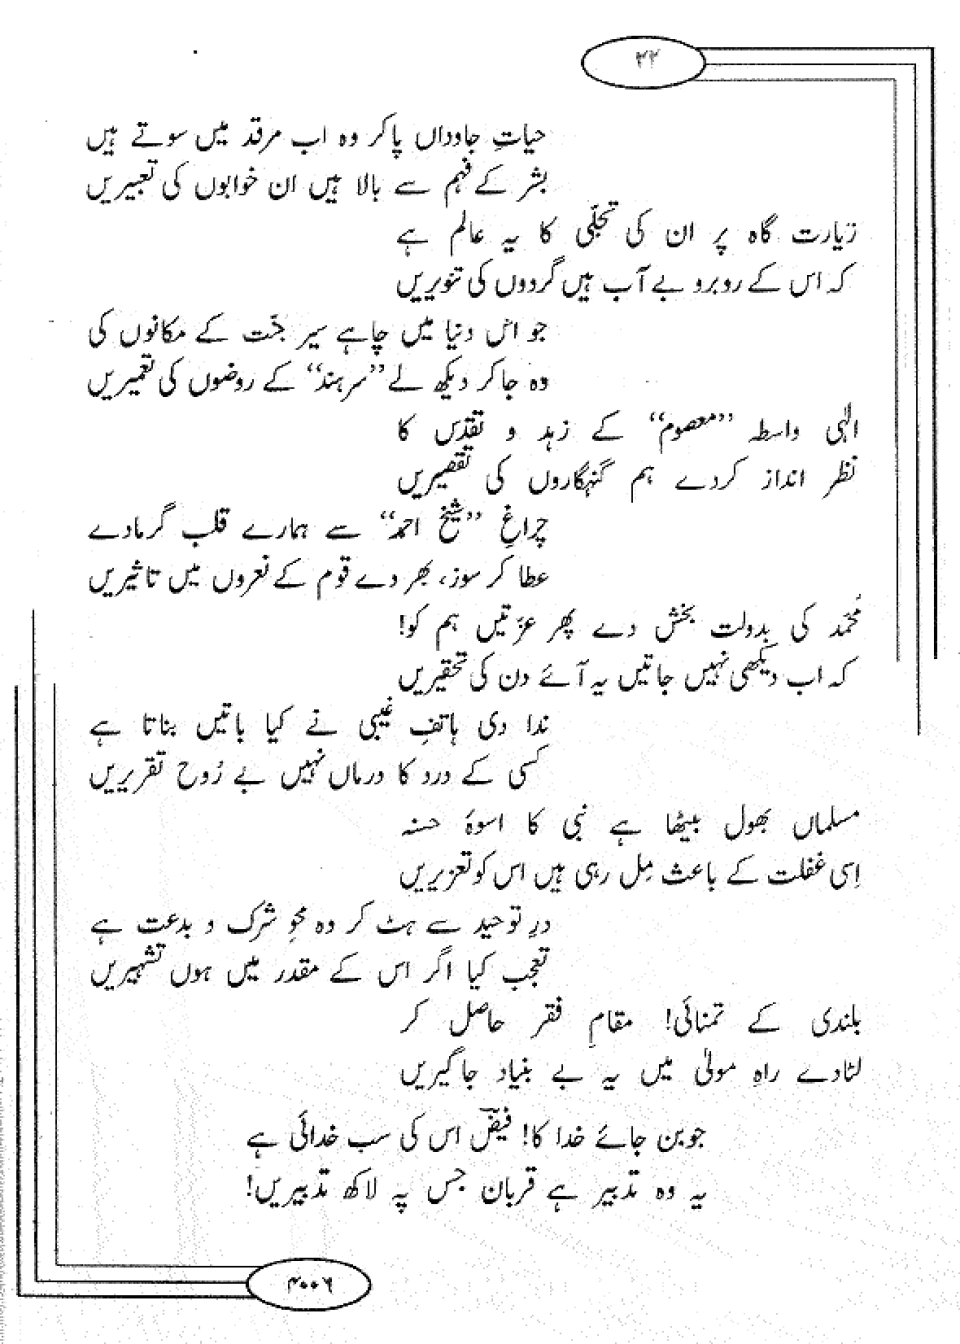 ۳۲
حیاتِ جاوداں پاکر وہ اب مرقد میں سوتے ہیں
بشر کے فہم سے بالا ہیں ان خوابوں کی تعبیریں
زیارت گاہ پر ان کی تجلّی کا یہ عالم ہے
کہ اس کے روبرو بے آب ہیں گردوں کی تنویریں
جو اس دنیا میں چاہے سیر جنّت کے مکانوں کی
وہ جاکر دیکھ لے ”سرہند“ کے روضوں کی تعمیریں
الٰہی واسطہ ”معصوم“ کے زہد و تقدّس کا
نظر انداز کردے ہم گنہگاروں کی تقصیریں
چراغِ ”شیخ احمد“ سے ہمارے قلب گرمادے
عطا کر سوز، بھر دے قوم کے نعروں میں تاثیریں
محمّد کی بدولت بخش دے پھر عزّتیں ہم کو!
کہ اب دیکھی نہیں جاتیں یہ آئے دن کی تحقیریں
ندا دی ہاتفِ غیبی نے کیا باتیں بناتا ہے
کسی کے درد کا درماں نہیں بے رُوح تقریریں
مسلماں بھول بیٹھا ہے نبی کا اسوۂ حسنہ
اِسی غفلت کے باعث مِل رہی ہیں اس کو تعزیریں
درِ توحید سے ہٹ کر وہ محوِ شرک و بدعت ہے
تعجب کیا اگر اس کے مقدر میں ہوں تشہیریں
بلندی کے تمنائی! مقامِ فقر حاصل کر
لٹادے راہِ مولیٰ میں یہ بے بنیاد جاگیریں
جو بن جائے خدا کا! فیضؔ اس کی سب خدائی ہے
یہ وہ تدبیر ہے قربان جس پہ لاکھ تدبیریں!
۴۰۰۶